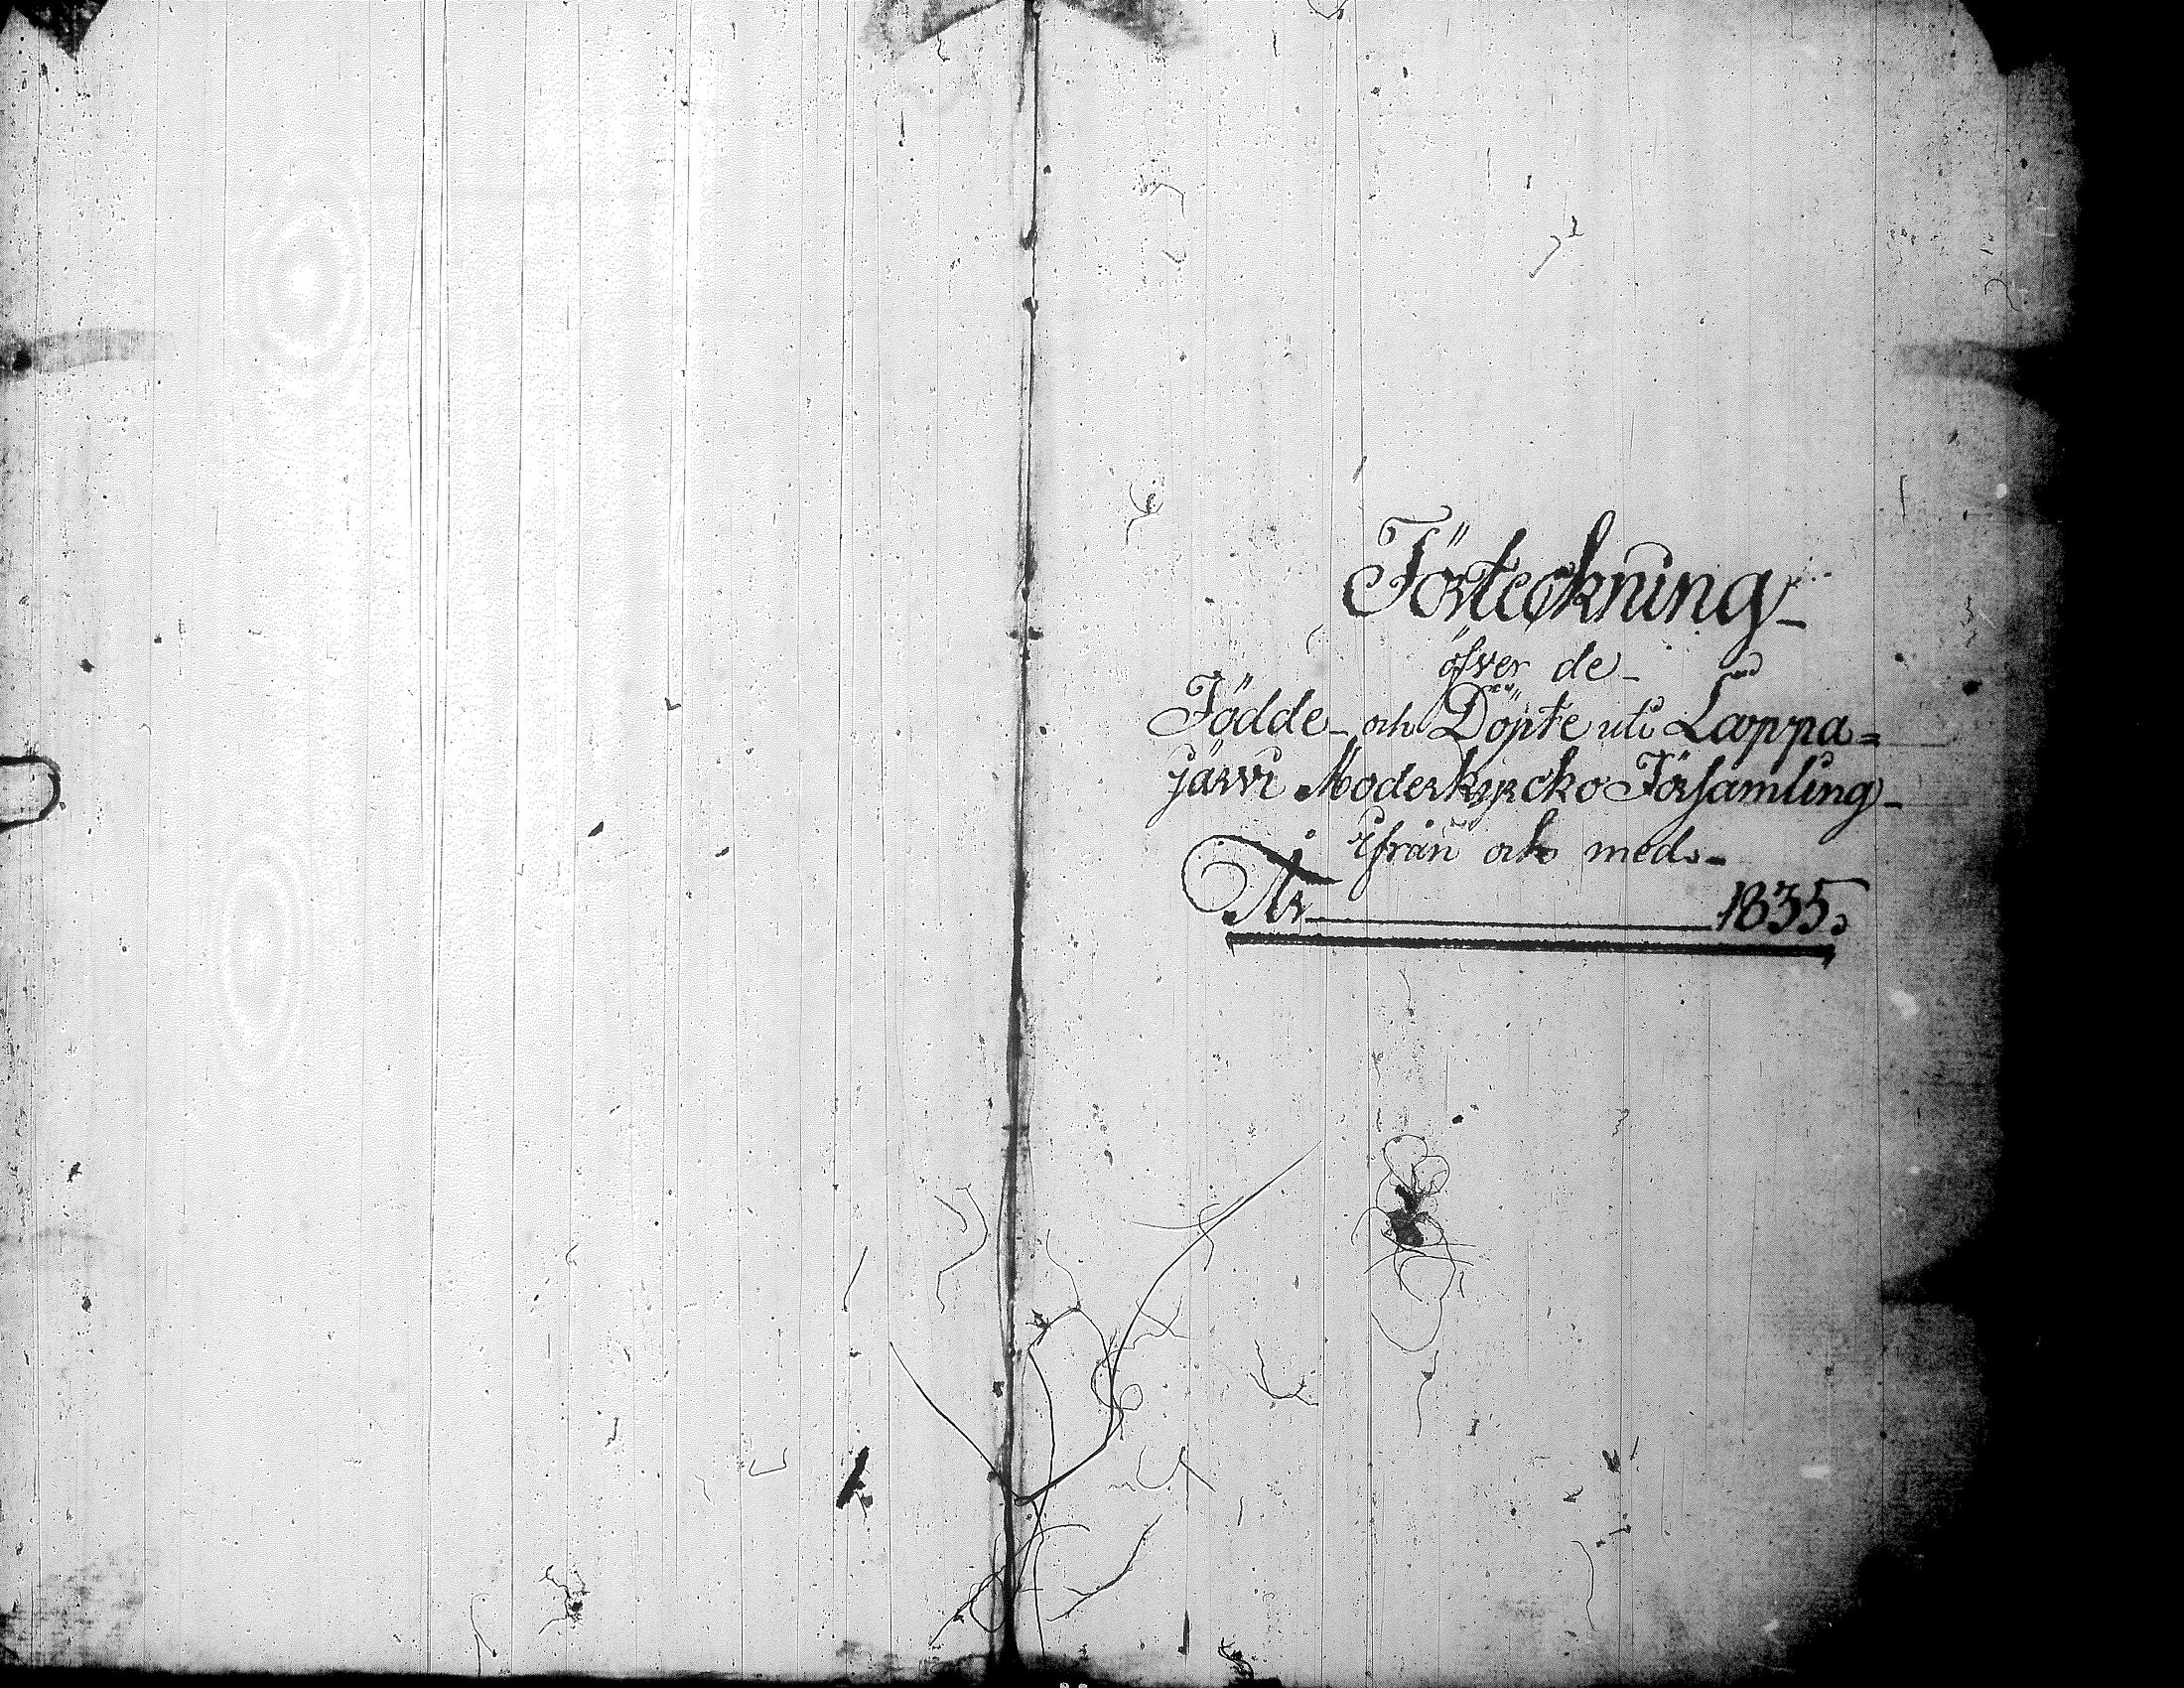 Förteckning
öfver de
Födde och Döpte uti Lappa=
järvi Moderkyrcko Församling
ifrån och med
År 1835.